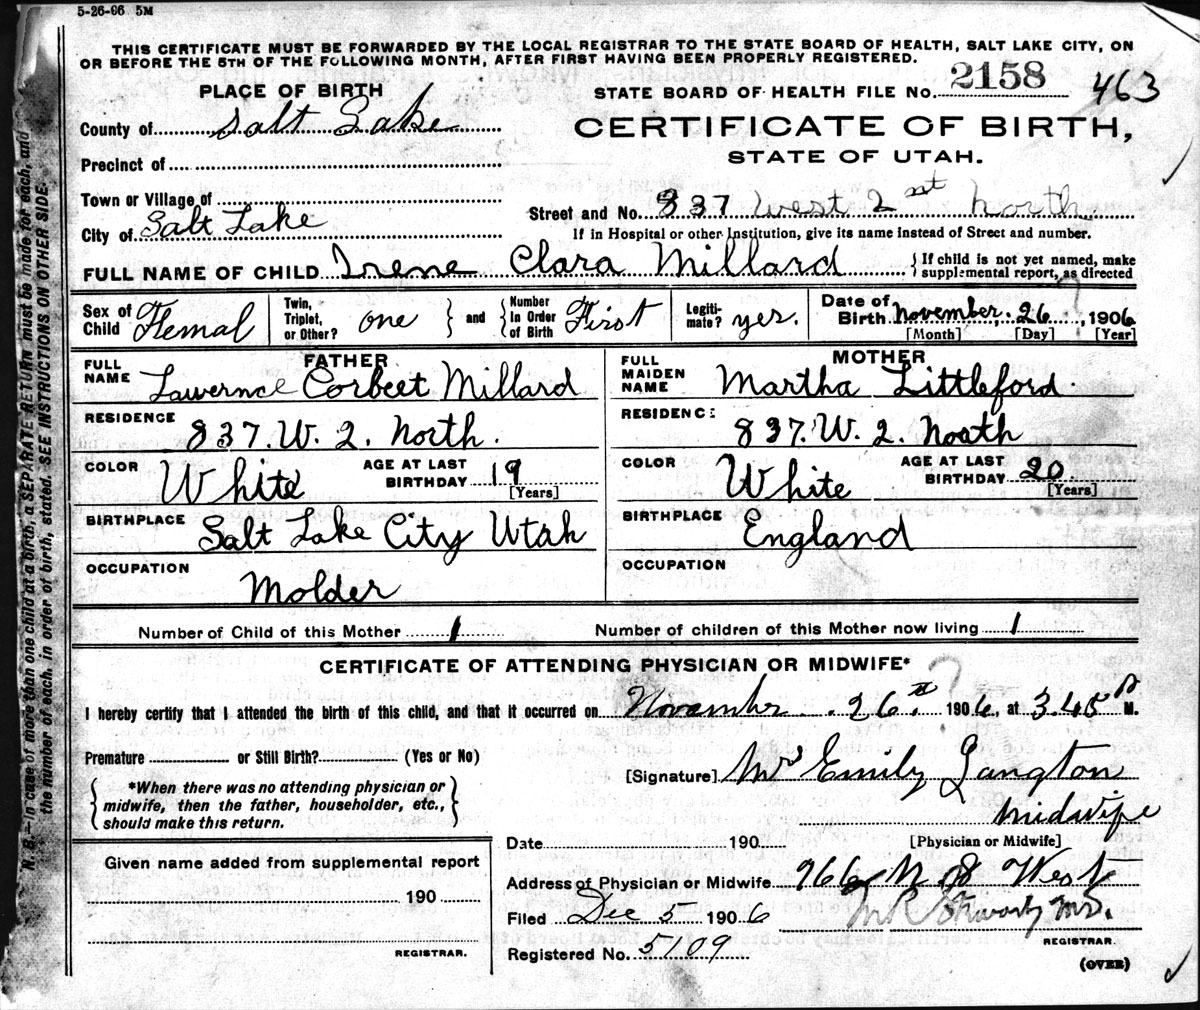 5-26-06 5M
THIS CERTIFICATE MUST BE FORWARDED BY THE LOCAL REGISTRAR TO THE STATE BOARD OF HEALTH, SALT LAKE CITY, ON
OR BEFORE THE 5TH OF THE FOLLOWING MONTH, AFTER FIRST HAVING BEEN PROPERLY REGISTERED.
PLACE OF BIRTH
STATE BOARD OF HEALTH FILE No. 2158 463
County of Salt Lake
CERTIFICATE OF BIRTH,
STATE OF UTAH.
Precinct of
Town or Village of
City of Salt Lake
Street and No. 837 West 2 nt North
If in Hospital or other Institution, give its name instead of Street and number.
FULL NAME OF CHILD Irene Clara Millard { If child is not yet named, make
supplemental report, as directed
Sex of Child Femal Twin, Triplet, or Other? one } and { Number in Order of Birth First Legiti-mate? yes. Date of Birth November, 26, 1906
[Month] [Day] [Year]
FATHER MOTHER
FULL NAME Lawernce Corbeet Millard FULL MAIDEN NAME Martha Littleford.
RESIDENCE 837. W. 2. North. RESIDENCE 837. W. 2. Noath
COLOR White AGE AT LAST BIRTHDAY 19 [Years] COLOR White AGE AT LAST BIRTHDAY 20 [Years]
BIRTHPLACE Salt Lake City Utah BIRTHPLACE England
OCCUPATION Molder OCCUPATION
Number of Child of this Mother 1 Number of children of this Mother now living 1
CERTIFICATE OF ATTENDING PHYSICIAN OR MIDWIFE* ?
I hereby certify that I attended the birth of this child, and that it occurred on November 26th 1906, at 3.45 P M.
Premature or Still Birth? (Yes or No)
[Signature] Mrs Emily Langton
*When there was no attending physician or
midwife, then the father, householder, etc.,
should make this return.
Midwife
Date 190 [Physician or Midwife]
Given name added from supplemental report
190
REGISTRAR.
Address of Physician or Midwife 966 N 8 West
Filed Dec 5 1906
REGISTRAR.
Registered No. 5109
(OVER)
N. B.—In case of more than one child at a birth, a SEPARATE RETURN must be made for each, and
the number of each, in order of birth, stated. SEE INSTRUCTIONS ON OTHER SIDE.